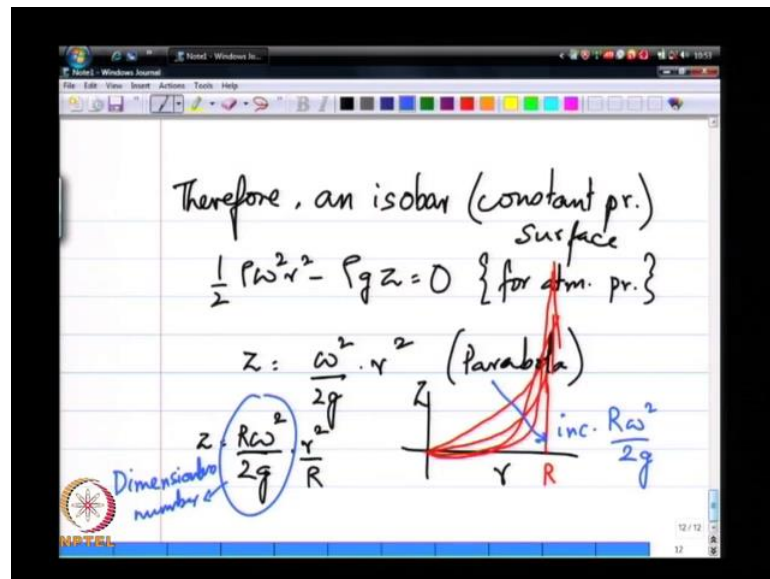 Note1 - Windows Jo...
10:53
Note1 - Windows Journal
File Edit View Insert Actions Tools Help
B I
Therefore, an isobar (constant pr.)
surface
1/2 ρω²r² - ρgz = 0 {for atm. pr.}
z = ω²/2g · r² (Parabola)
z = Rω²/2g · r²/R
Dimensionless number
Z
r
R
inc. Rω²/2g
NPTEL
12/12
12